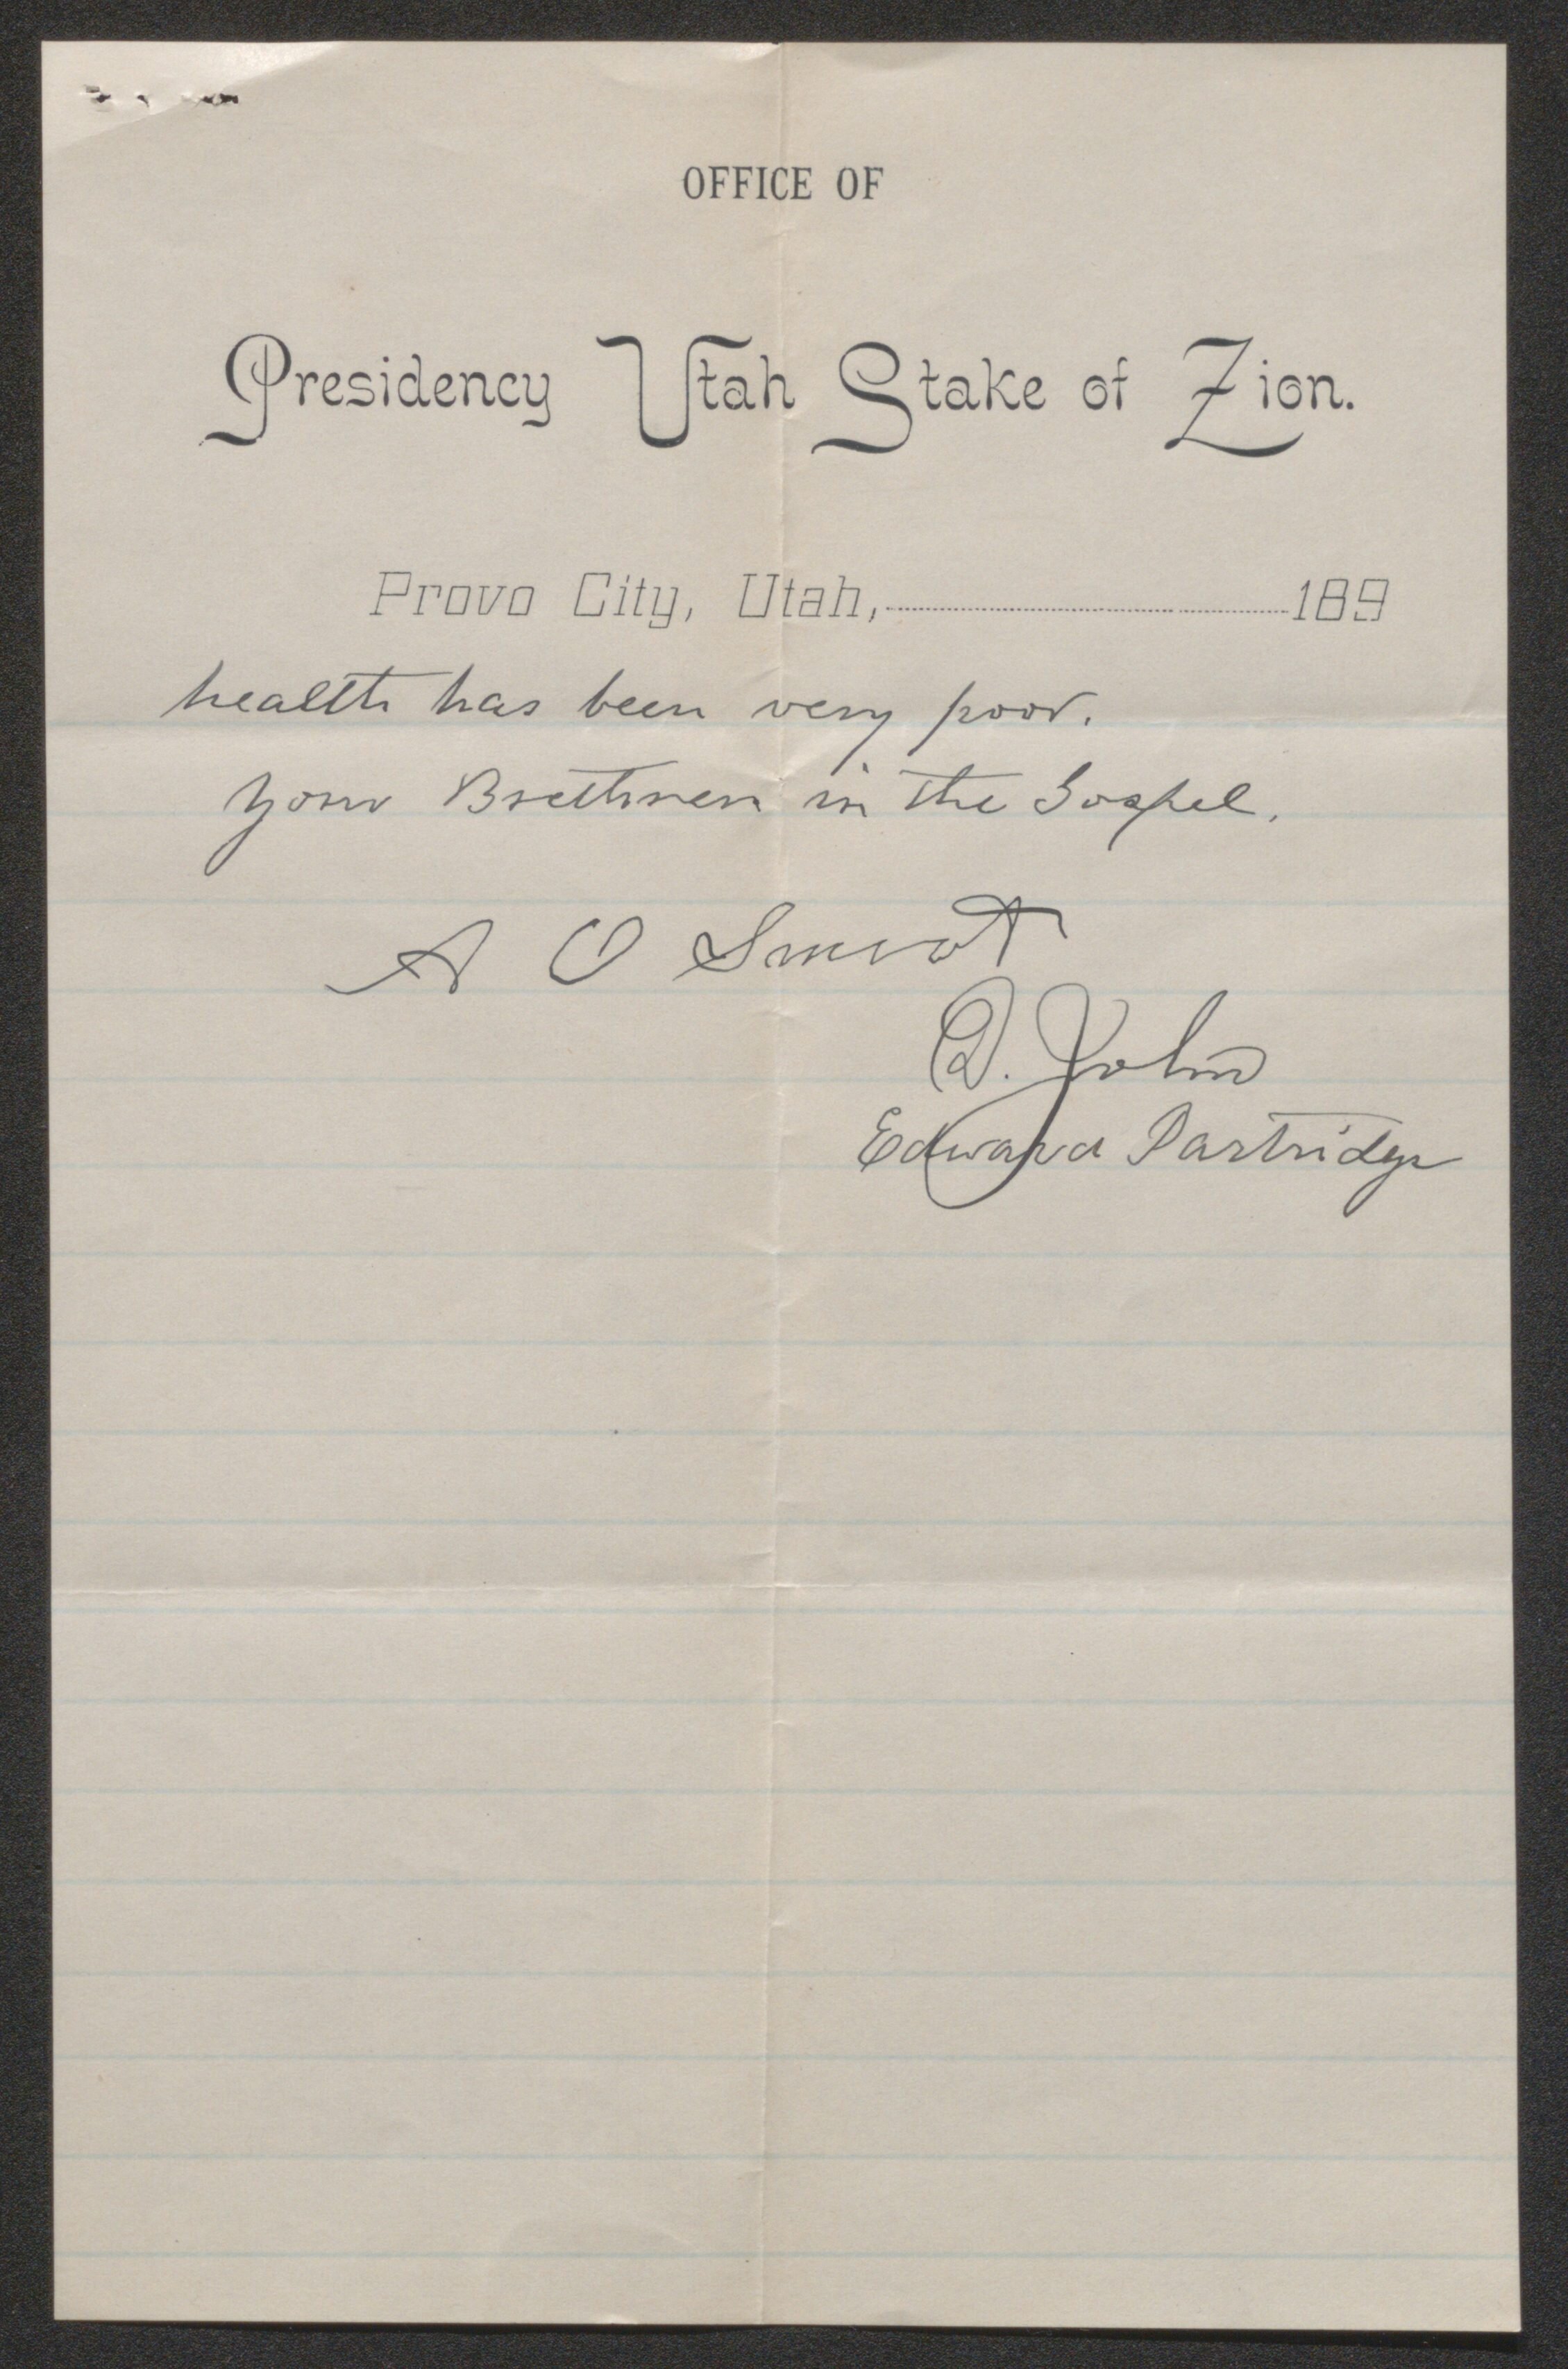 OFFICE OF
Presidency Utah Stake of Zion.
Provo City, Utah, 189
health has been very poor.
Your Brethren in the Gospel.
A O Smoot
D. John
Edward Partridge